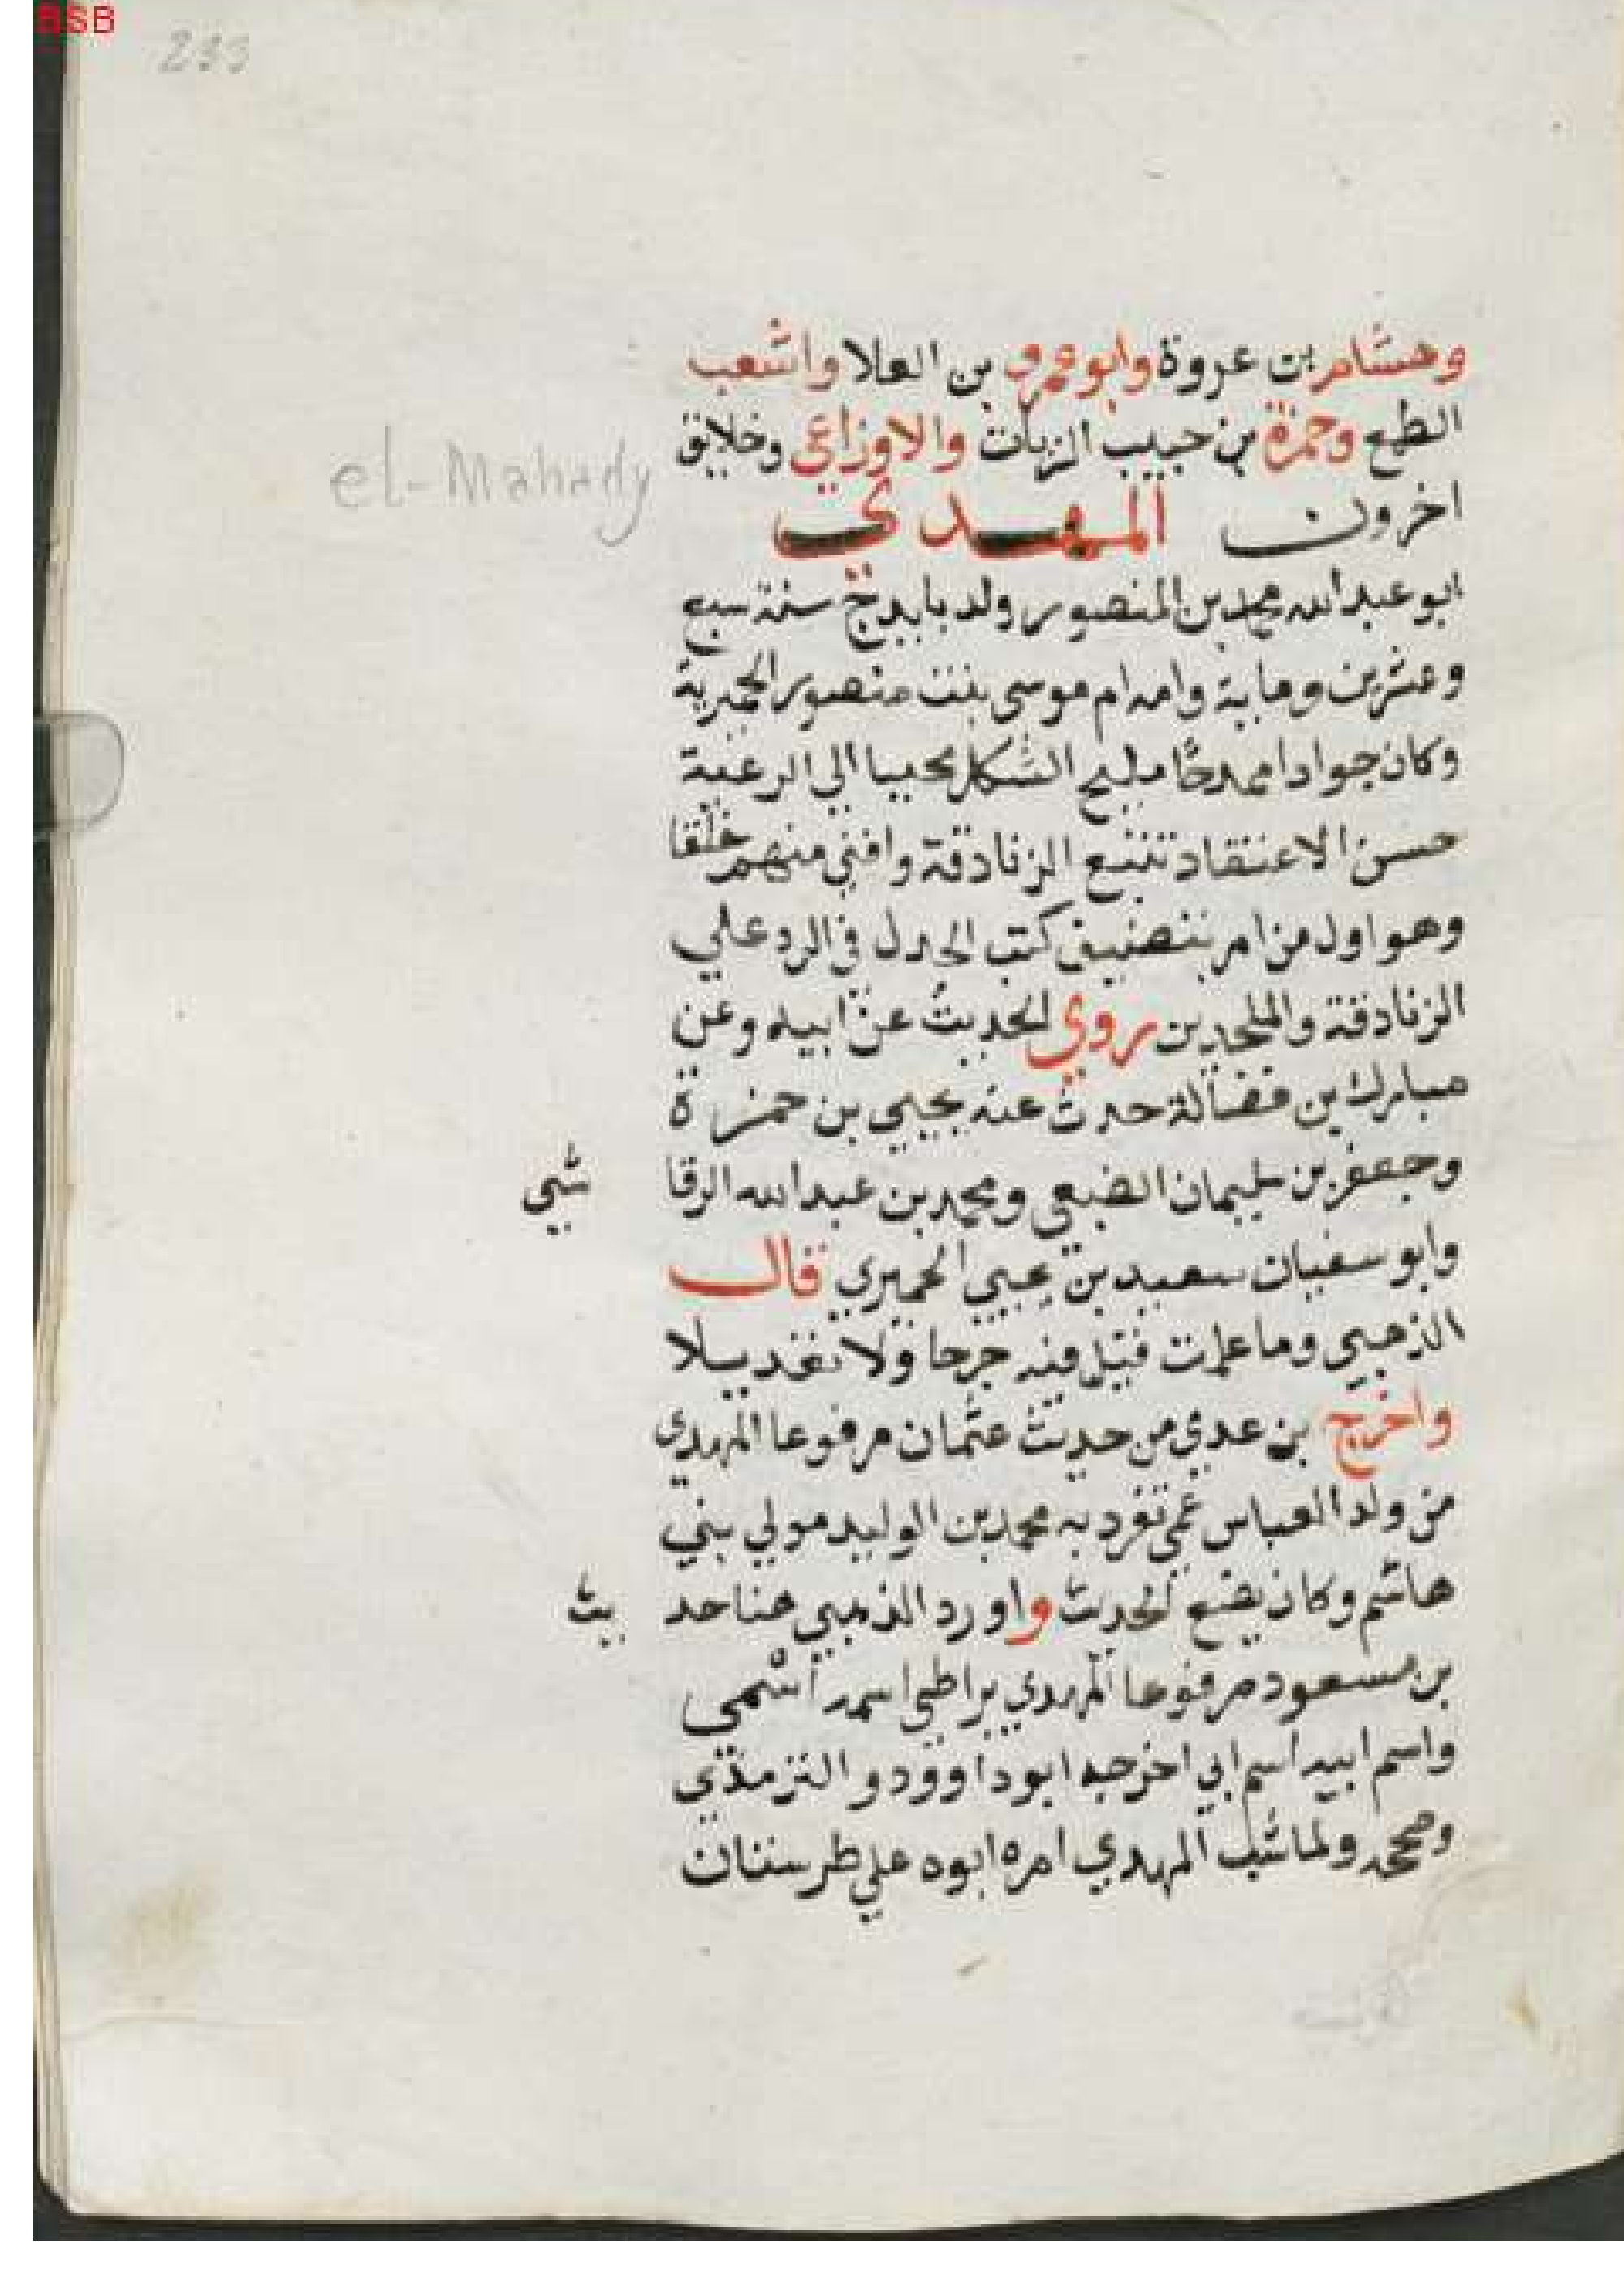 BSB
233
وهشام بن عروة وابو عمرو بن العلا واشعب
الطمع وحمزة بن حبيب الزيات والاوزاعي وخلايق
اخرون المهدي
el-Mahady
ابو عبد الله محمد بن المنصور ولد بايدج سنة سبع
وعشرين وماية وامه ام موسى بنت منصور الحميرية
وكان جوادا ممدحا مليح الشكل محببا الي الرعية
حسن الاعتقاد تتبع الزنادقة وافني منهم خلقا
وهو اول من امر بتصنيف كتب الجدل في الرد علي
الزنادقة والملحدين روي الحديث عن ابيه وعن
مبارك بن فضالة حدث عنه يحيي بن حمزة
وجعفر بن سليمان الضبعي ومحمد بن عبد الله الرقا شي
وابو سفيان سعيد بن يحيي الحميري قال
الذهبي وما علمت قيل فيه جرحا ولا تعديلا
واخرج بن عدي من حديث عثمان مرفوعا المهدي
من ولد العباس عمي تفرد به محمد بن الوليد مولي بني
هاشم وكان يضع الحديث واورد الذهبي هنا حد يث
بن مسعود مرفوعا المهدي يواطي اسمه اسمي
واسم ابيه اسم ابي اخرجه ابو داوود والترمذي
وصححه ولما شب المهدي امره ابوه علي طرستان